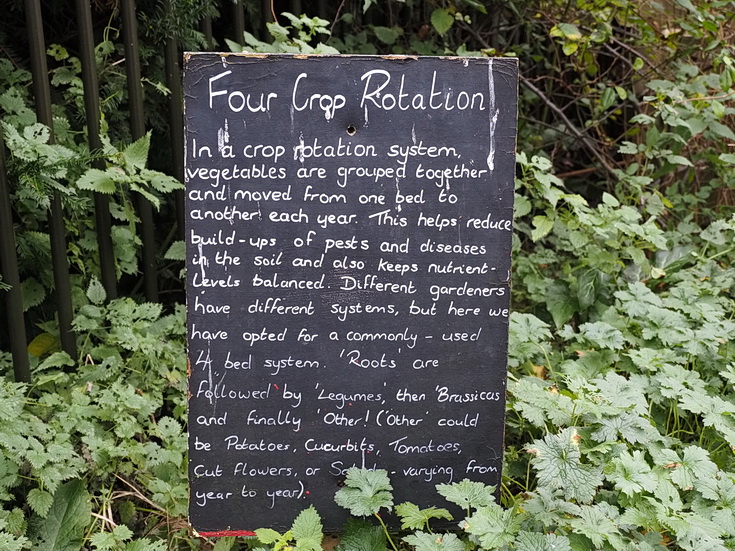 Four Crop Rotation
In a crop rotation system,
vegetables are grouped together
and moved from one bed to
another each year. This helps reduce
build-ups of pests and diseases
in the soil and also keeps nutrient-
levels balanced. Different gardeners
have different systems, but here we
have opted for a commonly - used
4 bed system. 'Roots' are
followed by 'Legumes', then 'Brassicas
and finally 'Other'! ('Other' could
be Potatoes, Cucurbits, Tomatoes,
Cut flowers, or - varying from
year to year).